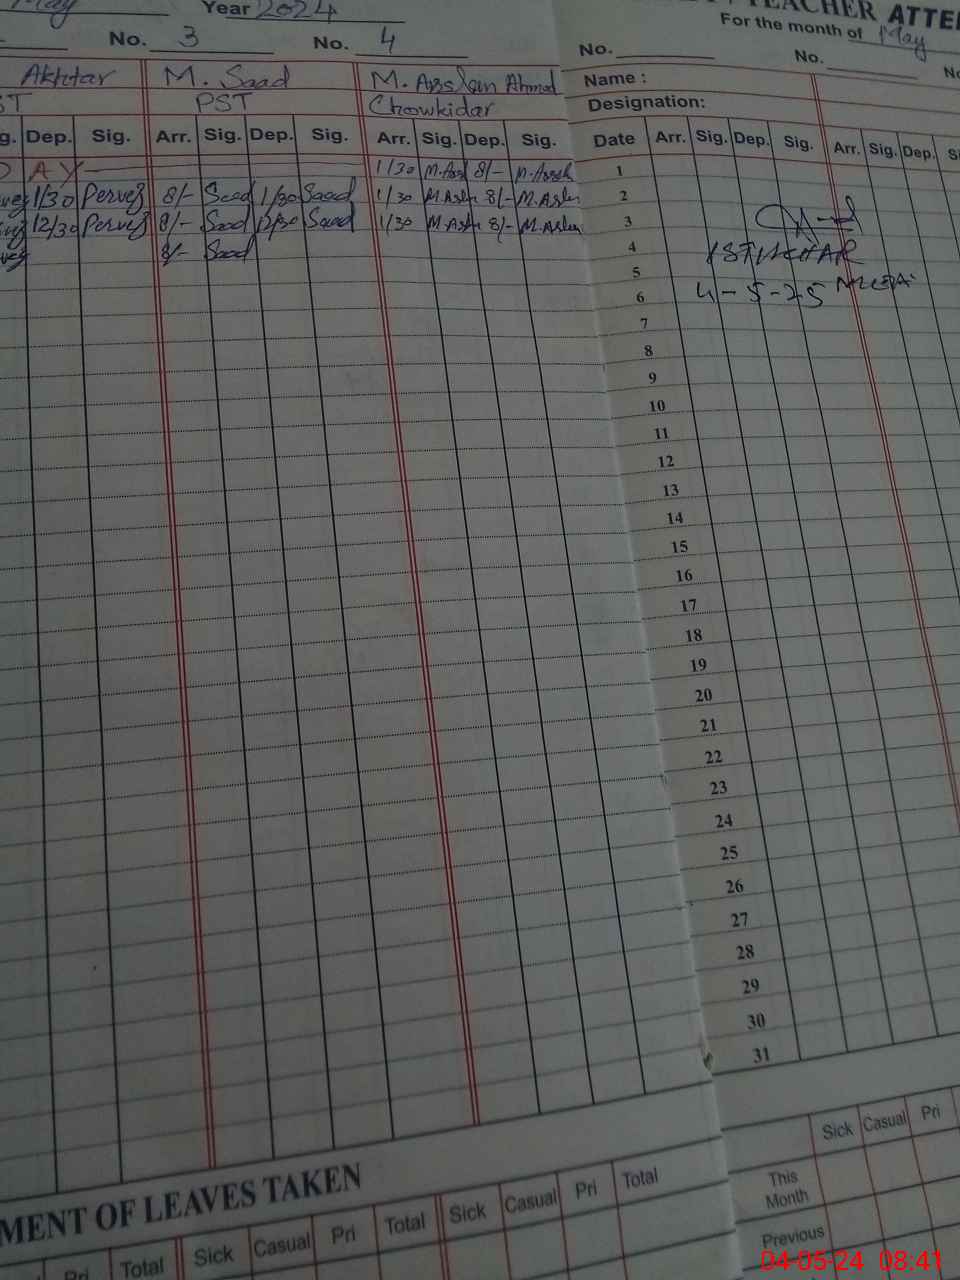 May Year 2024
No. 3 No. 4
Akhtar M. Saad M. Arslan Ahmad
PST Chowkidar
Dep. Sig. Arr. Sig. Dep. Sig. Arr. Sig. Dep. Sig.
D A Y 1/30 8/-
1/30 Pervez 8/- Saad 1/30 Saad 1/30 M.Arslan 8/- M.Arslan
12/30 Pervez 8/- Saad 12/30 Saad 1/30 M.Arslan 8/- M.Arslan
8/- Saad
MENT OF LEAVES TAKEN
Pri Total Sick Casual Pri Total Sick Casual Pri Total
TEACHER ATTE
For the month of May
No. No. No
Name :
Designation:
Date Arr. Sig. Dep. Sig. Arr. Sig. Dep.
1
2
3
4
5
6
7
8
9
10
11
12
13
14
15
16
17
18
19
20
21
22
23
24
25
26
27
28
29
30
31
4-5-25
Sick Casual Pri
This
Month
Previous
04-05-24 08:41